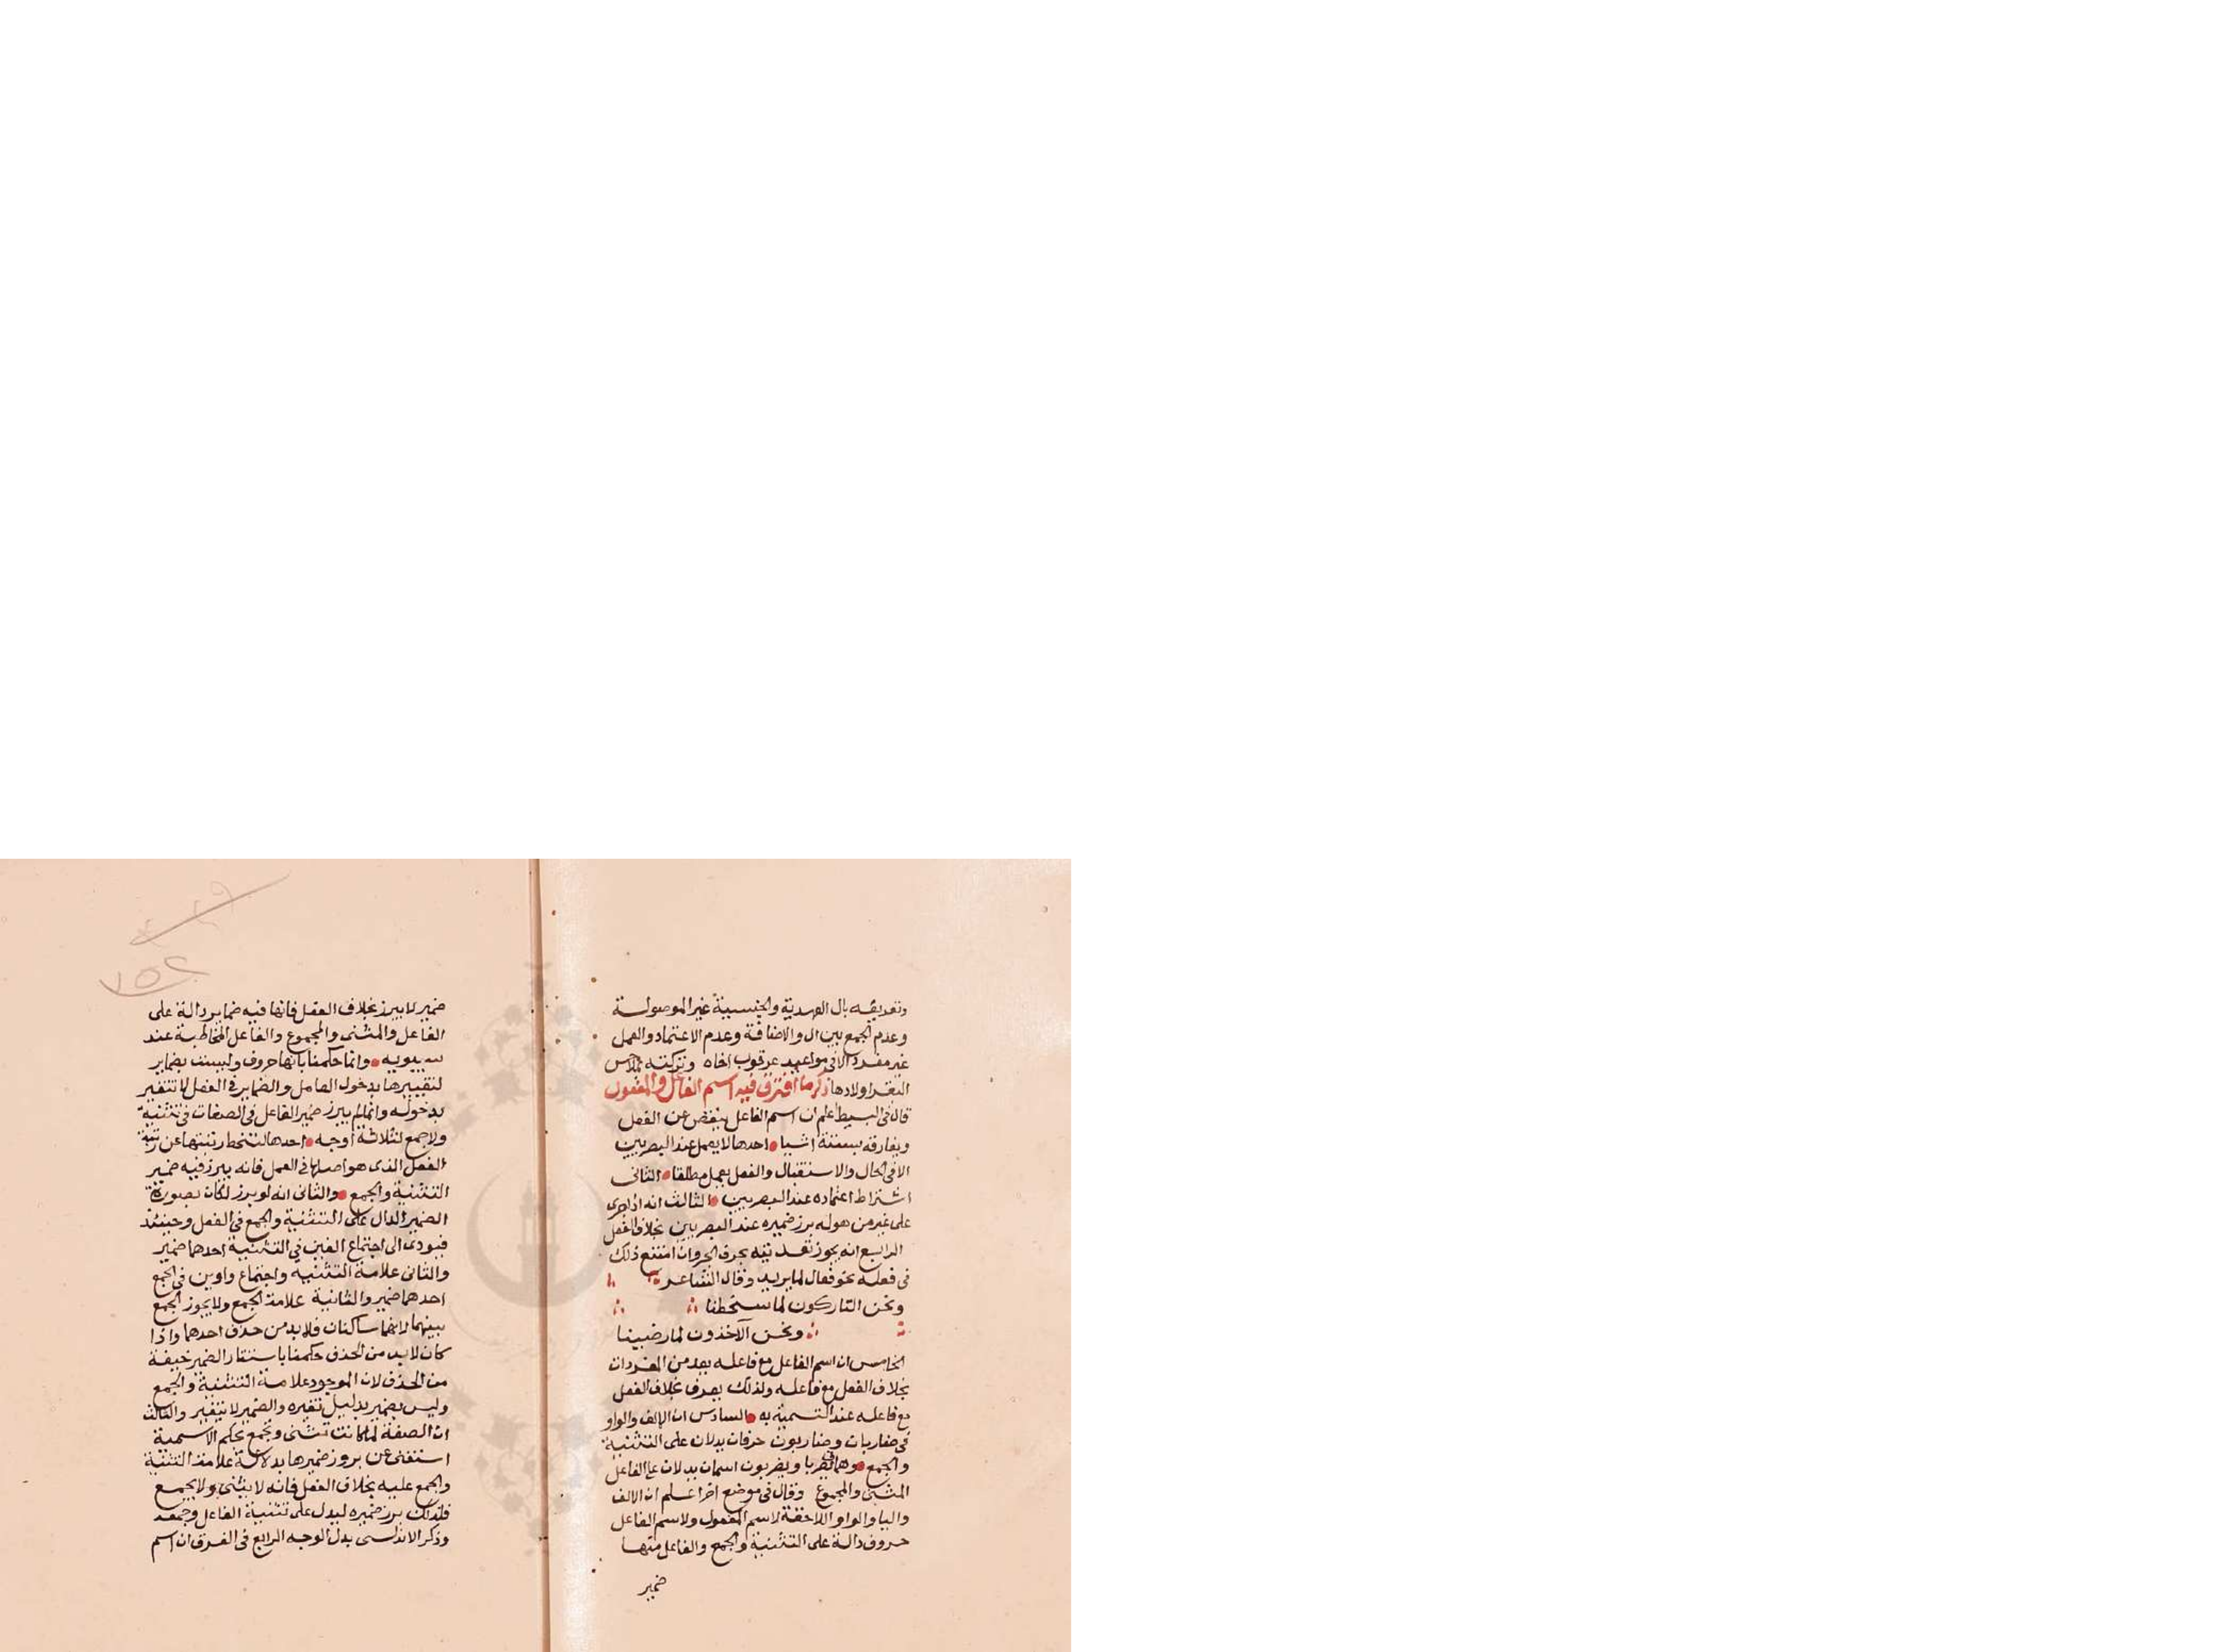 وتعريفه بال العهدية والجنسية غير الموصولة
وعدم الجمع بين ال والاضافة وعدم الاعتماد والعمل
غير مفرد الا في مواعيد عرقوب اخاه وتركته بملاحس
البقر اولادها ذكر ما افترق فيه اسم الفاعل والمفعول
قال في البسيط اعلم ان اسم الفاعل ينقص عن الفعل
ويفارقه بستة اشيا احدها لا يعمل عند البصريين
الا في الحال والاستقبال والفعل يعمل مطلقا الثاني
اشتراط اعتماده عند البصريين الثالث انه اذا جرى
على غير من هو له برز ضميره عند البصريين بخلاف الفعل
الرابع انه يجوز تعديته بحرف الجر وان امتنع ذلك
في فعله نحو فعال لما يريد وقال الشاعر
ونحن التاركون لما سخطنا
ونحن الآخذون لما رضينا
الخامس ان اسم الفاعل مع فاعله يعد من المفردات
بخلاف الفعل مع فاعله ولذلك يعرف بخلاف الفعل
مع فاعله عند التسمية به السادس ان الالف والواو
في ضاربان وضاربون حرفان يدلان على التثنية
والجمع وهما في يضربا ويضربون اسمان يدلان على الفاعل
المثنى والمجموع وقال في موضع اخر اعلم ان الالف
واليا والواو اللاحقة لاسم المفعول ولاسم الفاعل
حروف دالة على التثنية والجمع والفاعل منها
ضمير
٢٥٧
ضمير لا يبرز بخلاف الفعل فانها فيه ضماير دالة على
الفاعل والمثنى والمجموع والفاعل المخاطبة عند
سيبويه وانما حكمنا بانها حروف وليست بضماير
لتغييرها بدخول العامل والضماير في الفعل لا تتغير
بدخوله وانما لم يبرز ضمير الفاعل في الصفات في تثنية
ولا جمع لثلاثة اوجه احدها لتنحط رتبتها عن رتبة
الفعل الذي هو اصلها في العمل فانه يبرز فيه ضمير
التثنية والجمع والثاني انه لو برز لكان بصورة
الضمير الدال على التثنية والجمع في الفعل وحينئذ
فيودي الى اجتماع الفين في التثنية احدهما ضمير
والثاني علامة التثنيه واجتماع واوين في الجمع
احدهما ضمير والثانية علامة الجمع ولا يجوز الجمع
بينهما لانهما ساكنان فلا بد من حذف احدهما واذا
كان لا بد من الحذف حكمنا باستتار الضمير خيفة
من الحذف لان الموجود علامة التثنية والجمع
وليس بضمير بدليل تغيره والضمير لا يتغير والثالث
ان الصفة لما كانت تثنى وتجمع بحكم الاسمية
استغنى عن بروز ضميرها بدلالة علامة التثنية
والجمع عليه بخلاف الفعل فانه لا يثنى ولا يجمع
فلذلك برز ضميره ليدل على تثنية الفاعل وجمعه
وذكر الاندلسي بدل الوجه الرابع في الفرق ان اسم